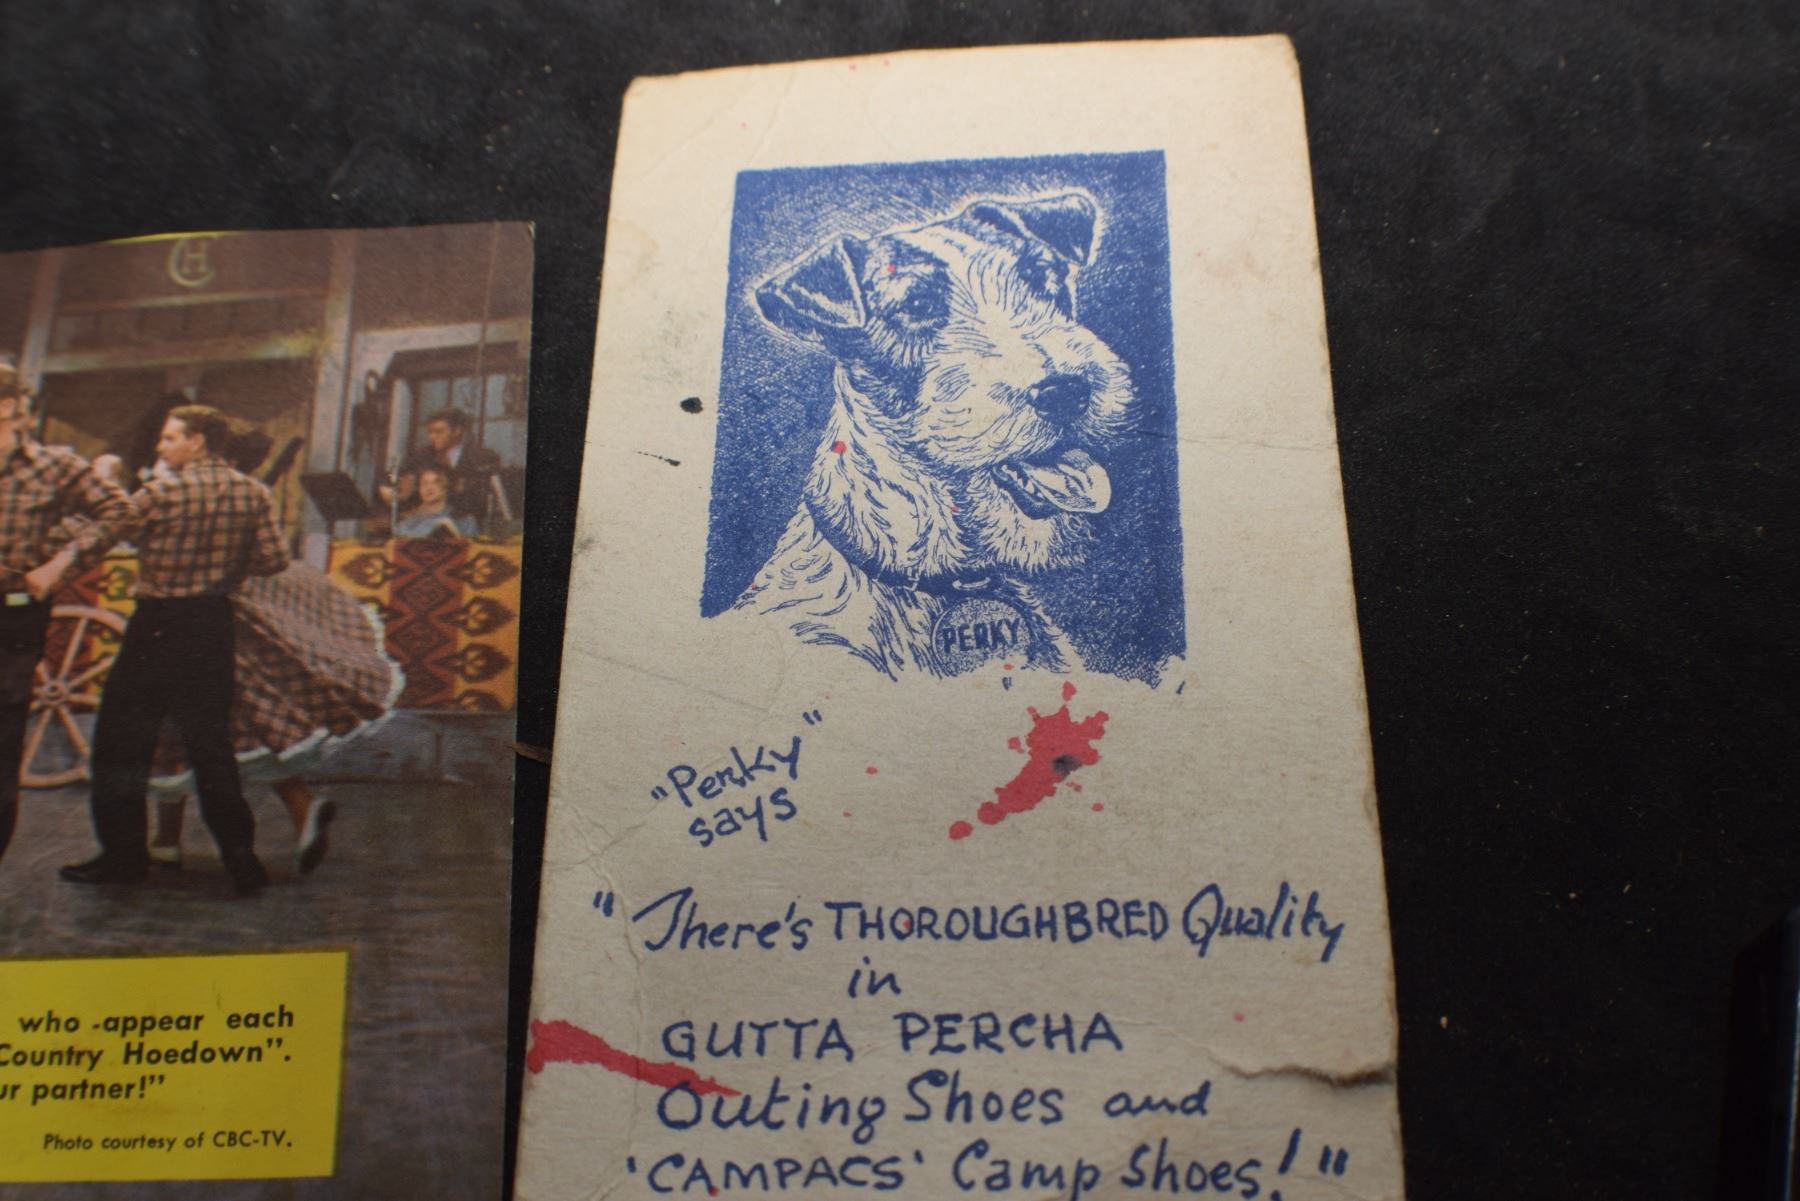 CH
who -appear each
Country Hoedown".
ur partner!"
Photo courtesy of CBC-TV.
PERKY
"Perky"
says
"There's THOROUGHBRED Quality
in
GUTTA PERCHA
Outing Shoes and
'CAMPACS' Camp Shoes!"